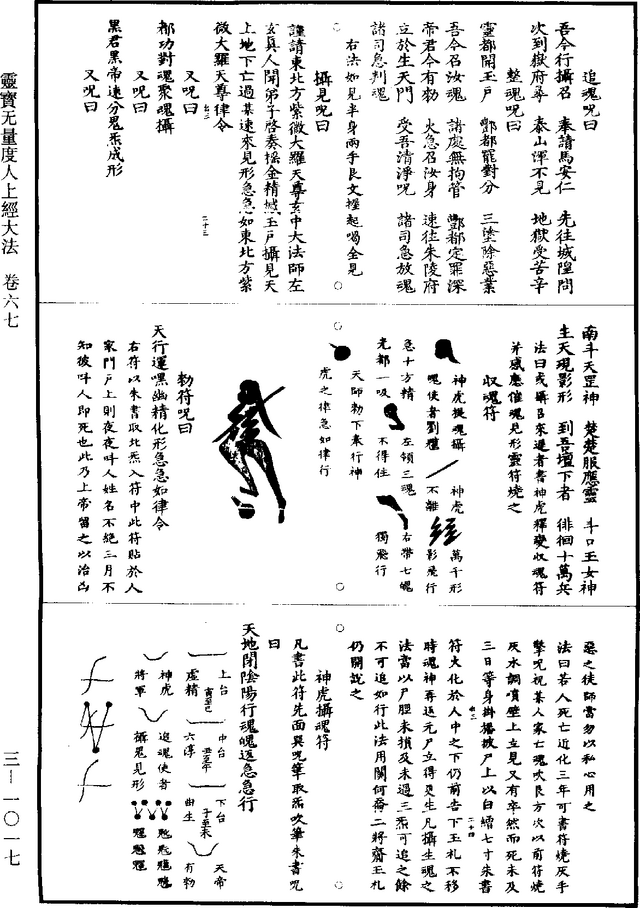 追魂咒曰
吾今行攝召　奉請馬安仁　先往城隍問
次到嶽府尋　泰山渾不見　地獄受苦辛
整魂咒曰
靈都開玉戶　酆都罷對分　三塗除惡業
吾今召汝魂　諸處無拘管　酆都定罪深
帝君令有勑　火急召汝身　速往朱陵府
立於生天門　受吾清淨呪　諸司急放魂
諸司急判魂
右法如見半身兩手艮文握起喝全見
攝見呪曰
謹請東北方紫微大羅天尊玄中大法師左
玄真人開弟子啓奏搖金精撼玉戶攝見天
上地下亡過某速來見形急急如東北方紫
微大羅天尊律令
又呪曰
都功對魂眾魂攝
又呪曰
黑君黑帝速分鬼炁成形
又呪曰
二十三
南斗天罡神　楚楚服應靈　斗口玉女神
生天現影形　到吾壇下者　徘徊十萬兵
法曰或攝召來遲者書神虎釋變收魂符
并感應催魂見形靈符燒之
收魂符
神虎捉魂攝　神虎　萬千形
魂使者劉　不離　影飛行
急十方精　左領三魂　右帶七魄
光都一吸　不得住　獨飛行
天師勑下奉行神
虎之律急如律行
勑符呪曰
天行運嘿幽精化形急急如律令
右符以朱書取北炁入符中此符貼於人
家門戶上則夜夜呌人姓名不絕三月不
知彼呌人即死也此乃上帝留之以治凶
惡之徒師當勿以私心用之
法曰若人死亡近化三年可書符燒灰手
擎呪祝某人家亡魂吹艮方次以前符燒
灰水調噴壁上立見又有卒然而死未及
三日等身掛播披尸上以白繒七寸朱書
符火化於人中之下仍前告下玉札不移
時魂神再返元尸立得更生凡攝生魂之
法當以尸脛未損及未過三炁可追之餘
不可追如行此法用關何喬二將齋王札
仍開說之
二十四
神虎攝魂符
凡書此符先面巽呪筆取炁吹筆朱書呪
曰
天地閉陰陽行魂魄返急急行
上台　中台　下台　天帝
寅至巳　丑至午　子至未
虛精　六淳　曲生　有勑
神虎　追魂使者
將軍　攝鬼見形
靈寶无量度人上經大法　卷六七
三—一〇一七